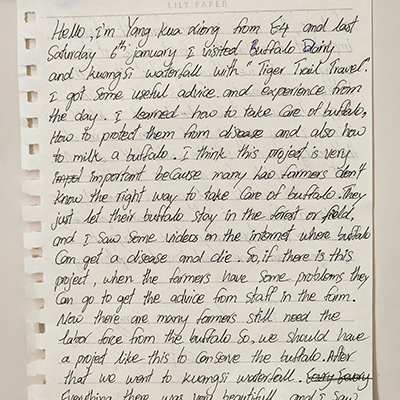 LILY PAPER
Hello, i'm Yang kua xiong from E4 and last
Saturday 6th january I visited Buffalo Dairy
and kuangsi waterfall with "Tiger Trail Travel".
I got some useful advice and experience from
the day. I learned how to take care of buffalo,
How to protect them from disease and also how
to milk a buffalo. I think this project is very
important because many Lao farmers don't
know the right way to take care of buffalo. They
just let their buffalo stay in the forest or field,
and i saw some videos on the internet where buffalo
Can get a disease and die. So, if there is this
project, when the farmers have some problems they
Can go to get the advice from staff in the farm.
Now there are many farmers still need the
labor force from the buffalo So, we should have
a project like this to Conserve the buffalo. After
that we went to kuangsi waterfall.
Everything there was very beautiful, and i saw